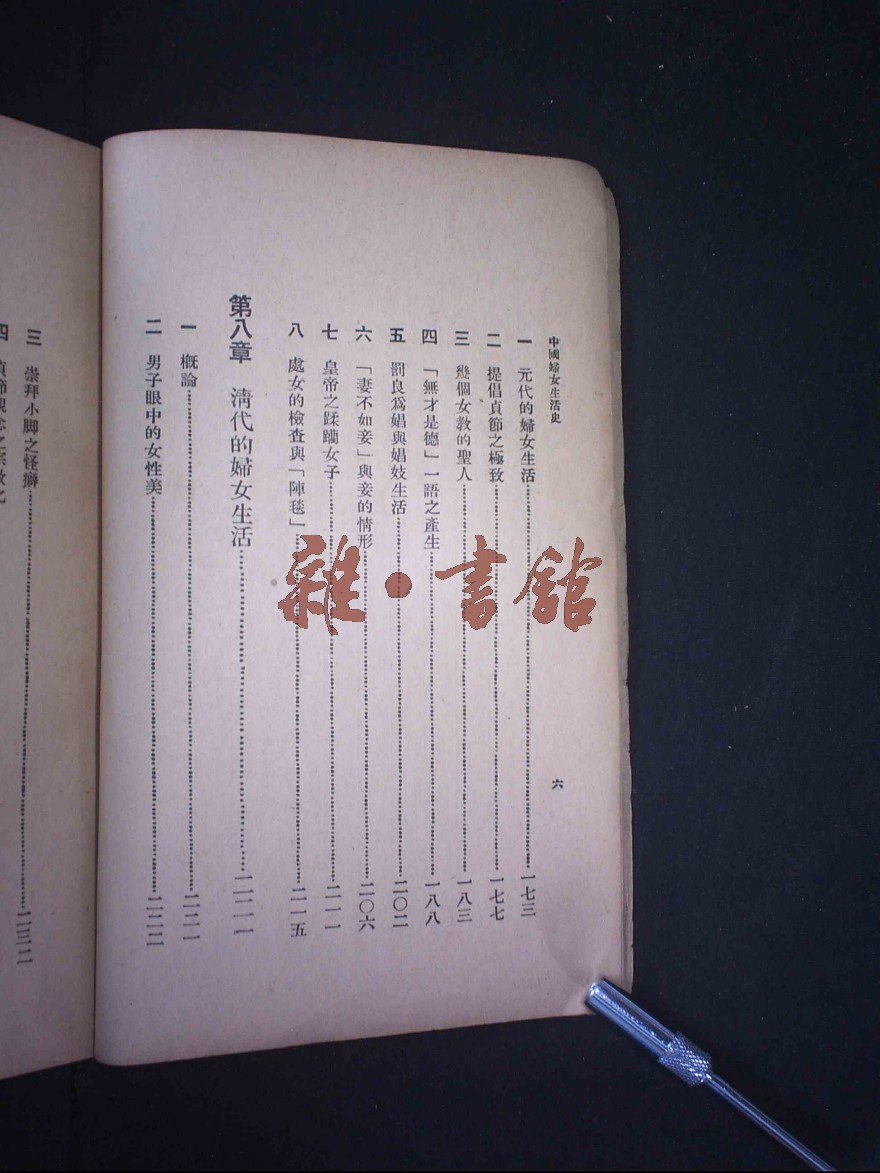 中國婦女生活史
六
一 元代的婦女生活……一七三
二 提倡貞節之極致……一七七
三 幾個女教的聖人……一八三
四 「無才是德」一語之產生……一八八
五 罰良爲娼與娼妓生活……二〇二
六 「妻不如妾」與妾的情形……二〇六
七 皇帝之蹂躪女子……二一一
八 處女的檢查與「陣毯」……二一五
第八章 清代的婦女生活……二二一
一 概論……二二一
二 男子眼中的女性美……二二二
三 崇拜小脚之怪癖……二三二
四 貞節觀念之宗教化
雜・書館